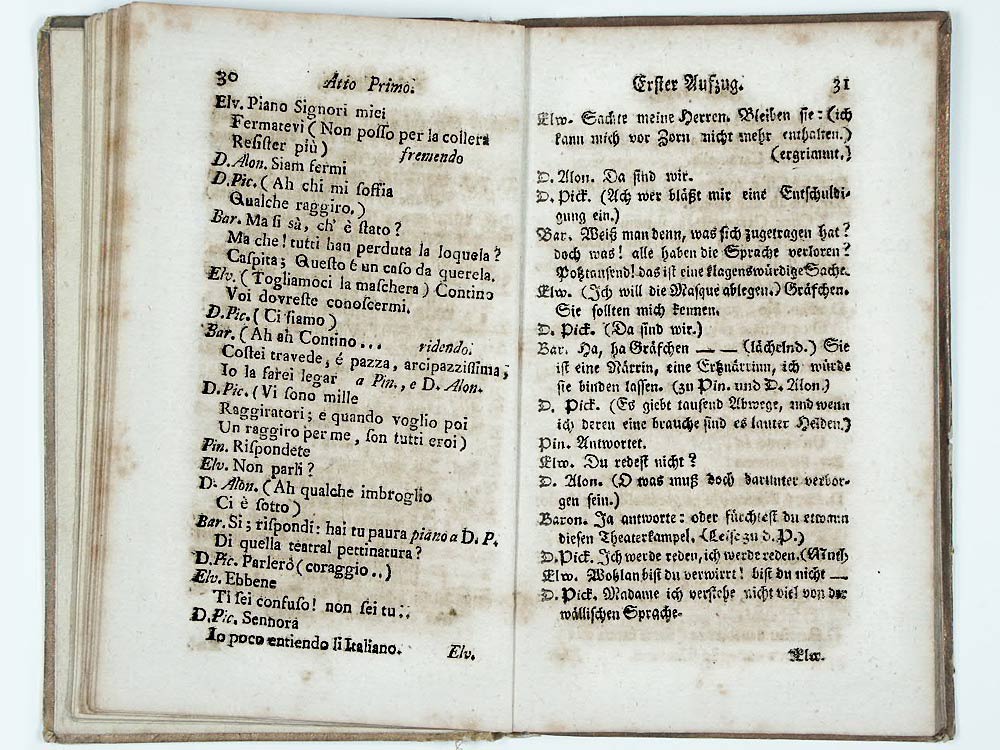 30 Atto Primo.
Elv. Piano Signori miei
Fermatevi ( Non posso per la collera
Resister più ) fremendo
D. Alon. Siam fermi
D. Pic. ( Ah chi mi soffia
Qualche raggiro. )
Bar. Ma si sà, ch' è stato ?
Ma che ! tutti han perduta la loquela ?
Caspita; Questo é un caso da querela.
Elv. ( Togliamoci la maschera ) Contino
Voi dovreste conoscermi.
D. Pic. ( Ci siamo )
Bar. ( Ah ah Contino ... ridendo.
Costei travede, é pazza, arcipazzissima ;
Io la farei legar a Pin., e D. Alon.
D. Pic. ( Vi sono mille
Raggiratori; e quando voglio poi
Un raggiro per me, son tutti eroi )
Pin. Rispondete
Elv. Non parli ?
D. Alon. ( Ah qualche imbroglio
Ci è sotto )
Bar. Si ; rispondi : hai tu paura piano a D. P.
Di quella teatral pettinatura ?
D. Pic. Parlerò ( coraggio .. )
Elv. Ebbene
Ti sei confuso ! non sei tu ..
D. Pic. Sennora
Io poco entiendo li Italiano.
Elv.
Erster Aufzug. 31
Elw. Sachte meine Herren. Bleiben sie : (ich
kann mich vor Zorn nicht mehr enthalten.)
(ergrimmt.)
D. Alon. Da sind wir.
D. Pick. (Ach wer bläßt mir eine Entschuldi-
gung ein.)
Bar. Weiß man denn, was sich zugetragen hat ?
doch was ! alle haben die Sprache verloren ?
Potztausend! das ist eine klagenswürdige Sache.
Elw. (Ich will die Masque ablegen.) Gräfchen.
Sie sollten mich kennen.
D. Pick. (Da sind wir.)
Bar. Ha, ha Gräfchen — — (lächelnd.) Sie
ist eine Närrin, eine Erznärrinn, ich würde
sie binden lassen. (zu Pin. und D. Alon.)
D. Pick. (Es giebt tausend Abwege, und wenn
ich deren eine brauche sind es lauter Helden.)
Pin. Antwortet.
Elw. Du redest nicht ?
D. Alon. (O was muß doch darunter verbor-
gen sein.)
Baron. Ja antworte : oder fürchtest du etwann
diesen Theaterkampel. (Leise zu d. P.)
D. Pick. Ich werde reden, ich werde reden. (Muth
Elw. Wohlan bist du verwirrt ! bist du nicht —
D. Pick. Madame ich verstehe nicht viel von der
wällischen Sprache.
Elw.